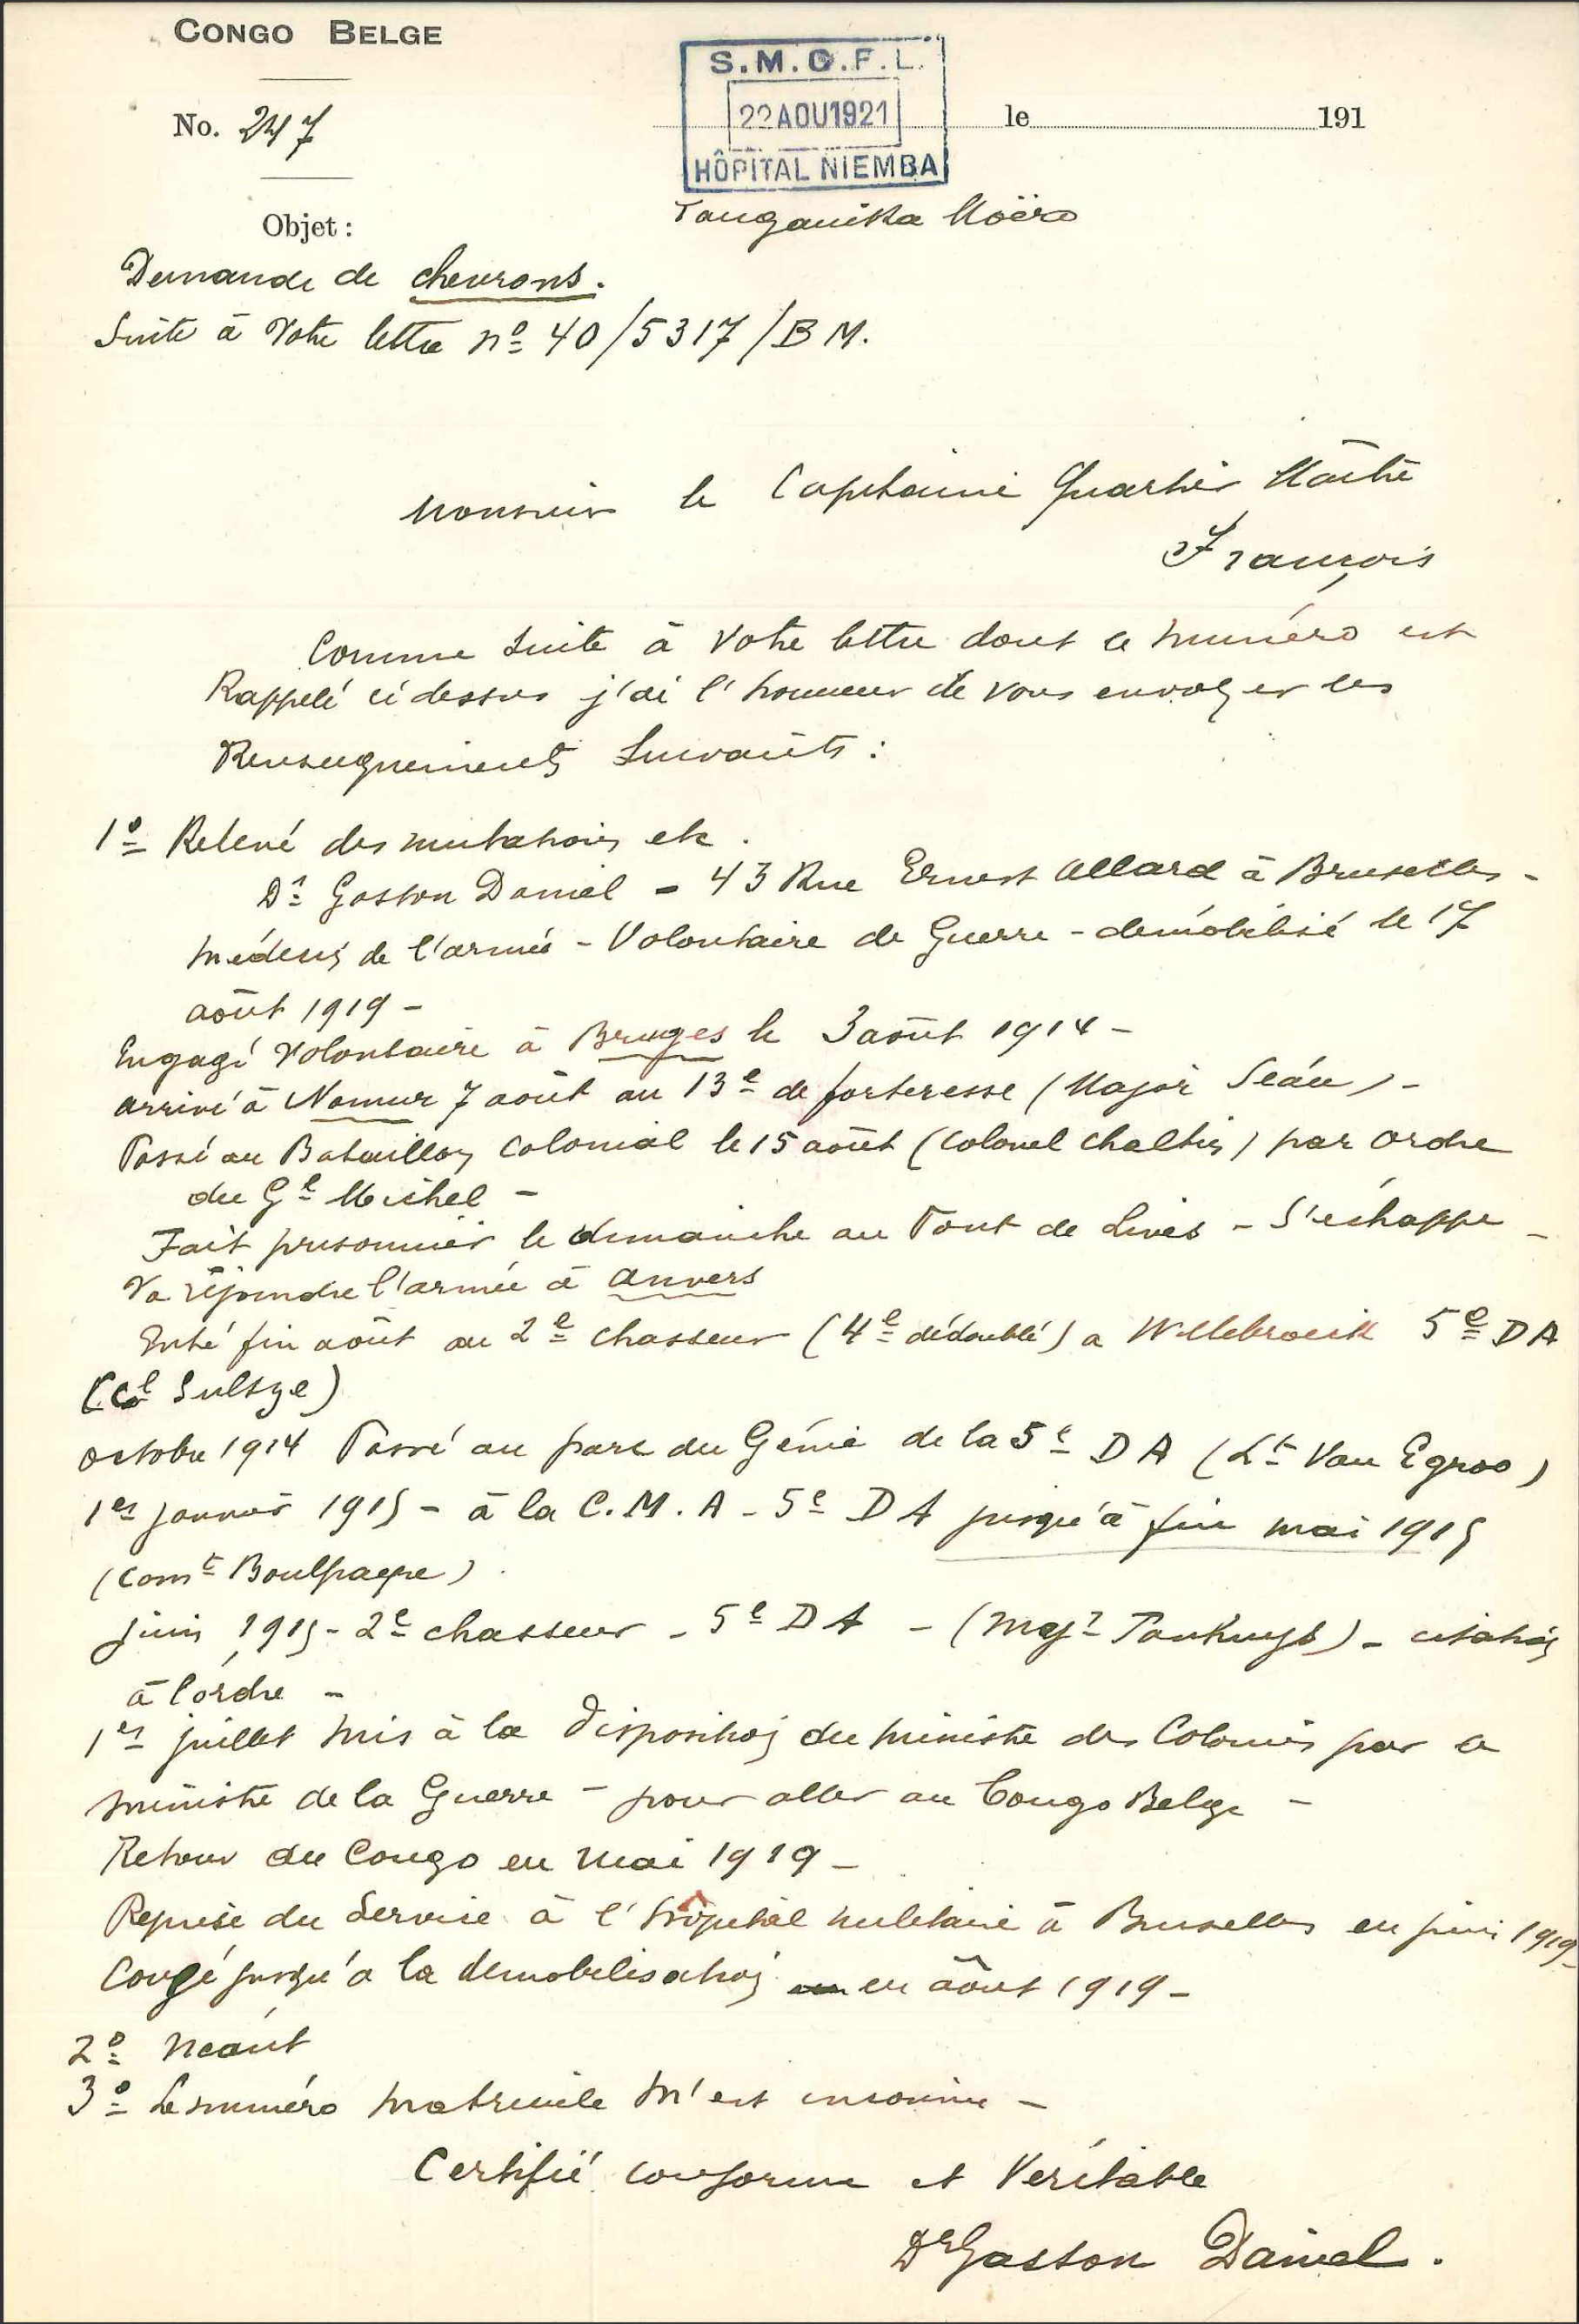 CONGO BELGE
No. 247
S.M.G.F.L.
22 AOU 1921
HÔPITAL NIEMBA
le 191
Tanganika Moëro
Objet :
Demande de chevrons.
Suite à Votre lettre nº 40/5317/BM.
Monsieur le Capitaine Quartier Maître
François
Comme suite à Votre lettre dont le numéro est
Rappelé ci dessus j'ai l'honneur de vous envoyer les
Renseignements Suivants :
1º Relevé des mutations etc.
Dr Gaston Daniel - 43 Rue Ernest Allard à Bruxelles -
médecin de l'armée - Volontaire de Guerre - démobilisé le 17
août 1919 -
Engagé Volontaire à Bruges le 3 août 1914 -
arrivé à Namur 7 août au 13e de forteresse (Major) -
Passé au Bataillon Colonial le 15 août (Colonel Chaltin) par ordre
du Gl Michel -
Fait prisonnier le dimanche au Pont de Lives - S'échappe -
Va rejoindre l'armée à Anvers
Entré fin août au 2e Chasseur (4e dédoublé) a Willebroeck 5e DA
(Cl)
octobre 1914 Passé au parc du Génie de la 5e DA (Lt Van Egroo)
1er janvier 1915 - à la C.M.A - 5e DA jusqu'à fin mai 1915
(Comt)
juin 1915 - 2e chasseur - 5e DA - (Majr) - citation
à l'ordre -
1er juillet mis à la disposition du ministre des Colonies par le
ministre de la Guerre - pour aller au Congo Belge -
Retour du Congo en Mai 1919 -
Reprise du Service à l'hôpital militaire à Bruxelles en juin 1919 -
Congé jusqu'a la démobilisation en août 1919 -
2º Néant
3º Le numéro matricule m'est inconnu -
Certifié conforme et Véritable
Dr Gaston Daniel.